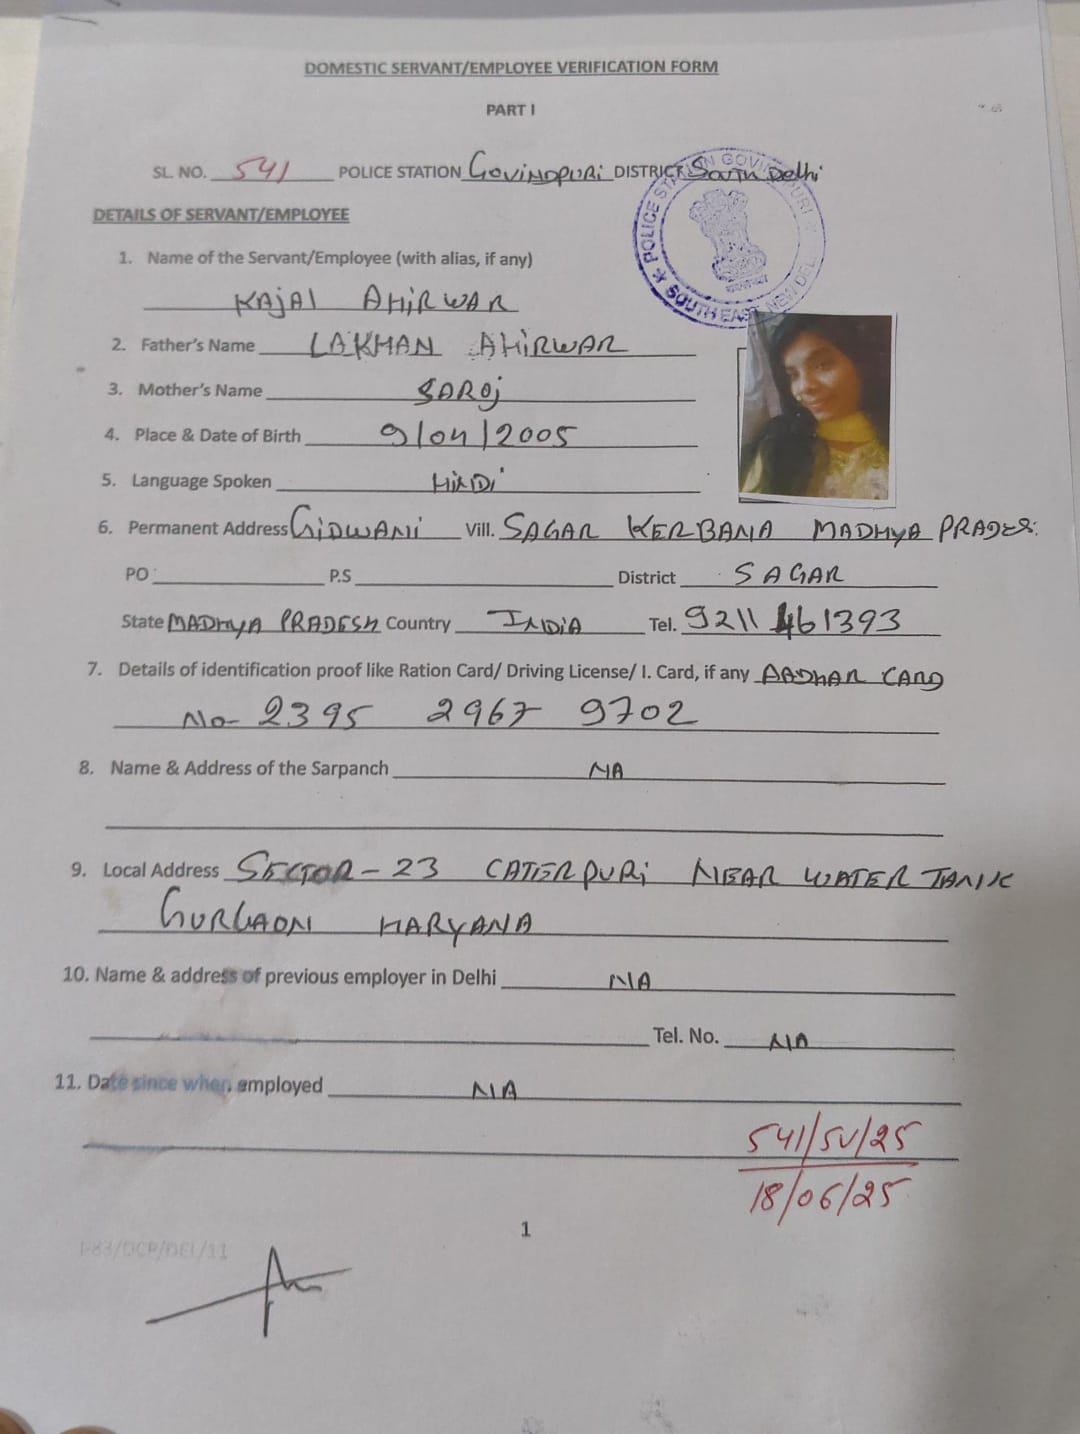 DOMESTIC SERVANT/EMPLOYEE VERIFICATION FORM
PART I
SL. NO. 541 POLICE STATION GOVINDPURI DISTRICT SOUTH Delhi
POLICE STATION GOVINDPURI
SOUTH EAST NEW DEL
DETAILS OF SERVANT/EMPLOYEE
1. Name of the Servant/Employee (with alias, if any)
KAJAL AHIRWAR
2. Father's Name LAKHAN AHIRWAR
3. Mother's Name SAROJ
4. Place & Date of Birth 9/04/2005
5. Language Spoken HINDI
6. Permanent Address GIDWANI Vill. SAGAR KERBANA MADHYA PRADES
PO P.S District SAGAR
State MADHYA PRADESH Country INDIA Tel. 9211461393
7. Details of identification proof like Ration Card/ Driving License/ I. Card, if any AADHAR CARD
No- 2395 2967 9702
8. Name & Address of the Sarpanch NA
9. Local Address SECTOR-23 CATERPURI NEAR WATER TANK
GURGAON HARYANA
10. Name & address of previous employer in Delhi NA
Tel. No. NA
11. Date since when employed NA
541/SV/25
18/06/25
1
F-83/DCP/DEL/11